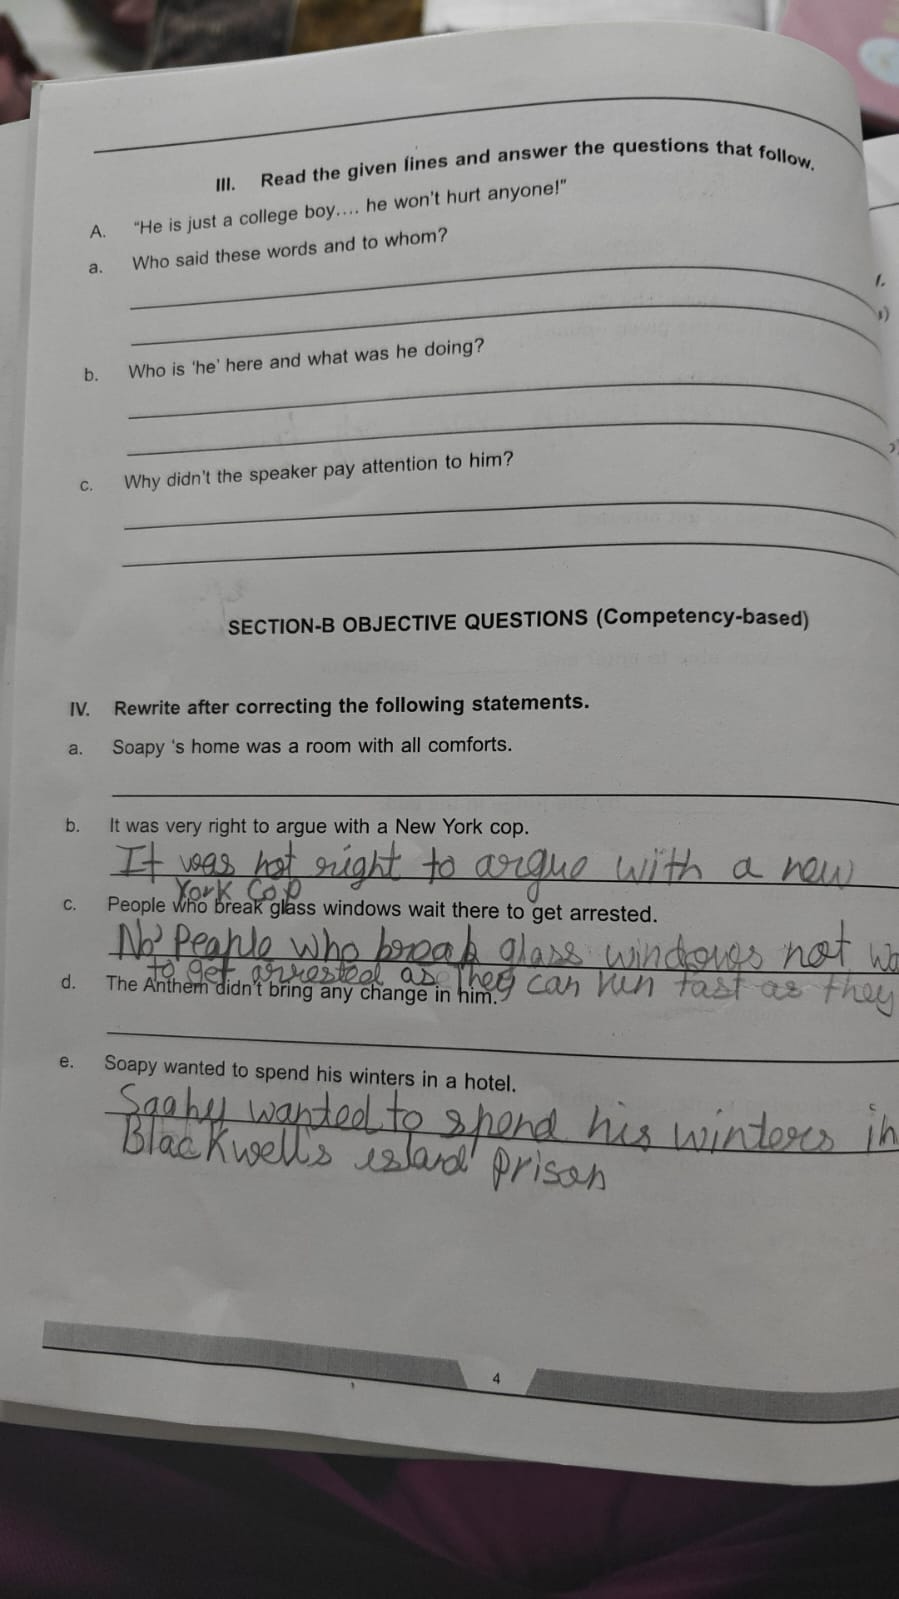 III. Read the given lines and answer the questions that follow.
A. “He is just a college boy.... he won't hurt anyone!”
a. Who said these words and to whom?
b. Who is ‘he’ here and what was he doing?
c. Why didn't the speaker pay attention to him?
SECTION-B OBJECTIVE QUESTIONS (Competency-based)
IV. Rewrite after correcting the following statements.
a. Soapy ‘s home was a room with all comforts.
b. It was very right to argue with a New York cop.
It was not right to argue with a new
York Cop
c. People who break glass windows wait there to get arrested.
No' Peaple who break glass windows not
to get arrested as They can run fast as they
d. The Anthem didn't bring any change in him.
e. Soapy wanted to spend his winters in a hotel.
wanted to spend his winters in
Blackwell's island prison
4